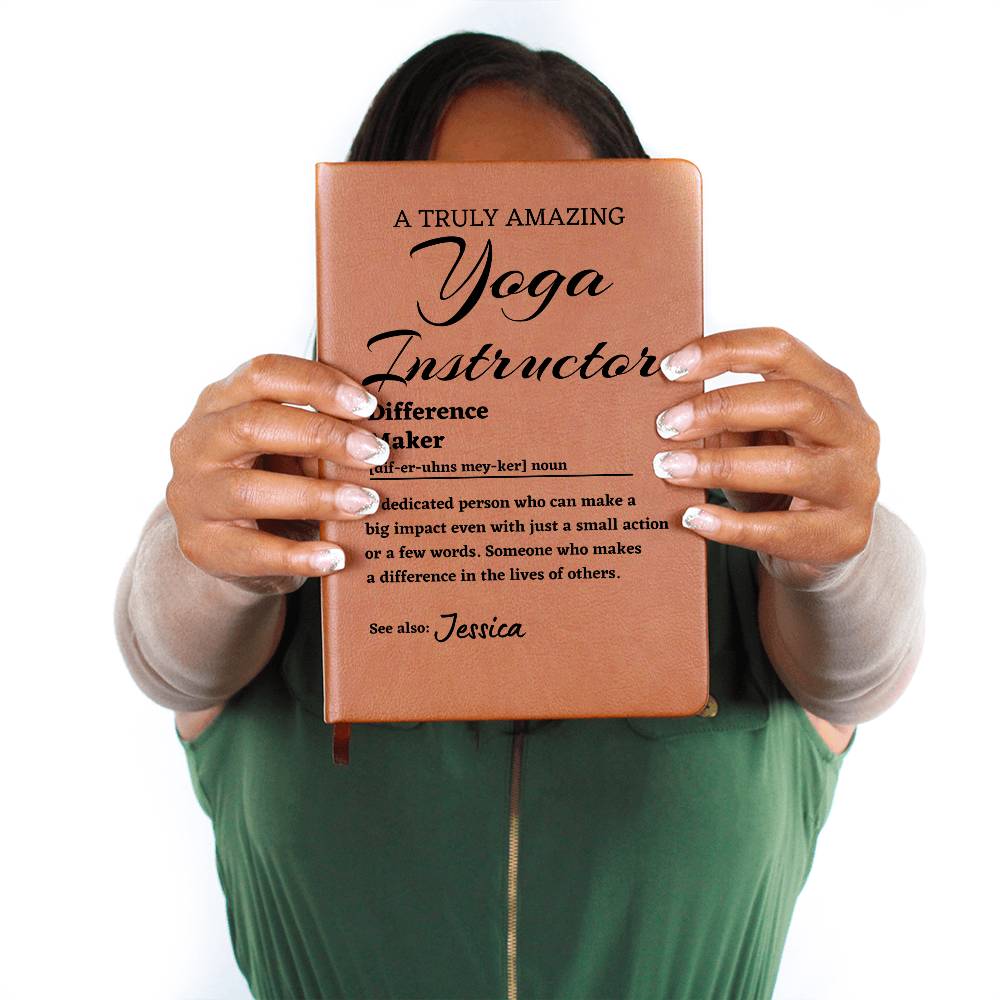 A TRULY AMAZING
Yoga
Instructor
Difference
Maker
[dif-er-uhns mey-ker] noun
dedicated person who can make a
big impact even with just a small action
or a few words. Someone who makes
a difference in the lives of others.
See also: Jessica